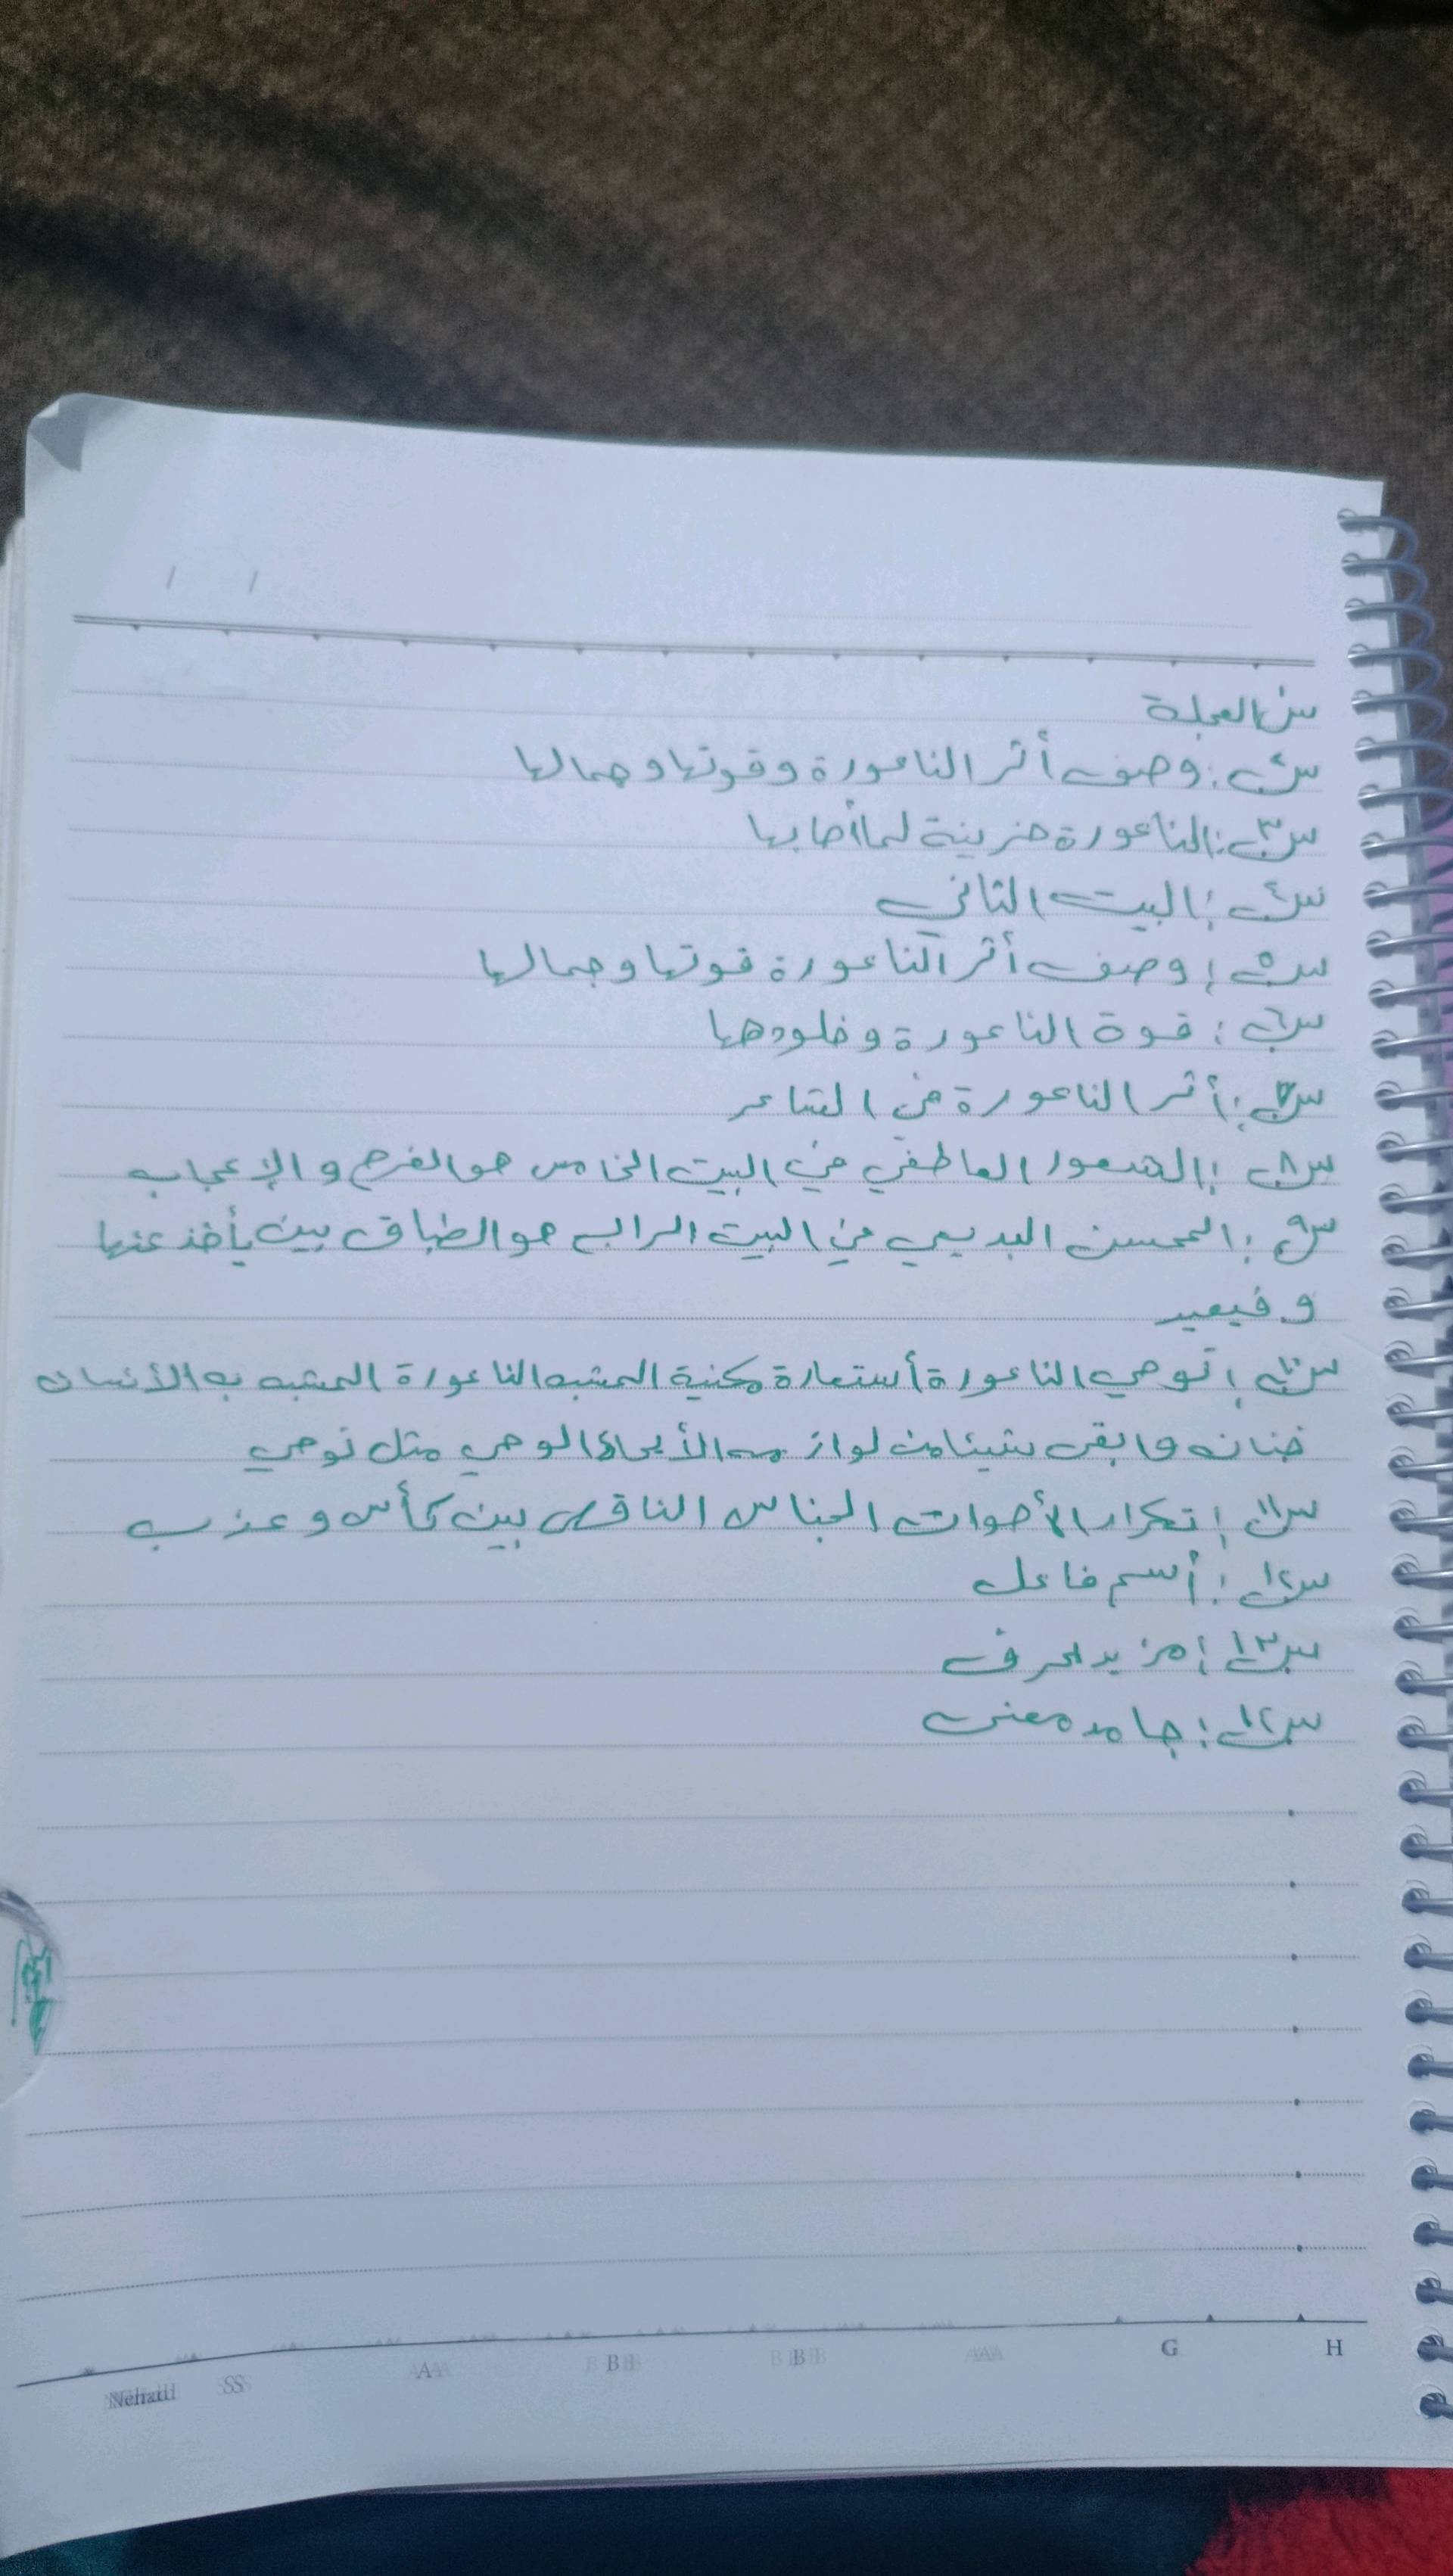 س١ العجلة
س٢: وصف أثر الناعورة وقوتها وجمالها
س٣: الناعورة حزينة لما أصابها
س٤: البيت الثاني
س٥: وصف أثر الناعورة قوتها وجمالها
س٦: قوة الناعورة وخلودها
س٧: أثر الناعورة في الشاعر
س٨: الشعور العاطفي في البيت الخامس هو الفرح و الإعجاب
س٩: المحسن البديعي في البيت الرابع هو الطباق بين يأخذ عنها
و فيعيد
س١٠: توحي الناعورة أستعارة مكنية المشبه الناعورة المشبه به الأنسان
فنانه وابقى شيئا من لوازمه الأيحاء الوحي مثل توحي
س١١: تكرار الأصوات الجناس الناقص بين كأس و عذب
س١٢: أسم فاعل
س١٣: مزيد بحرف
س١٤: جامد معنى
Nehad SS A B B A G H